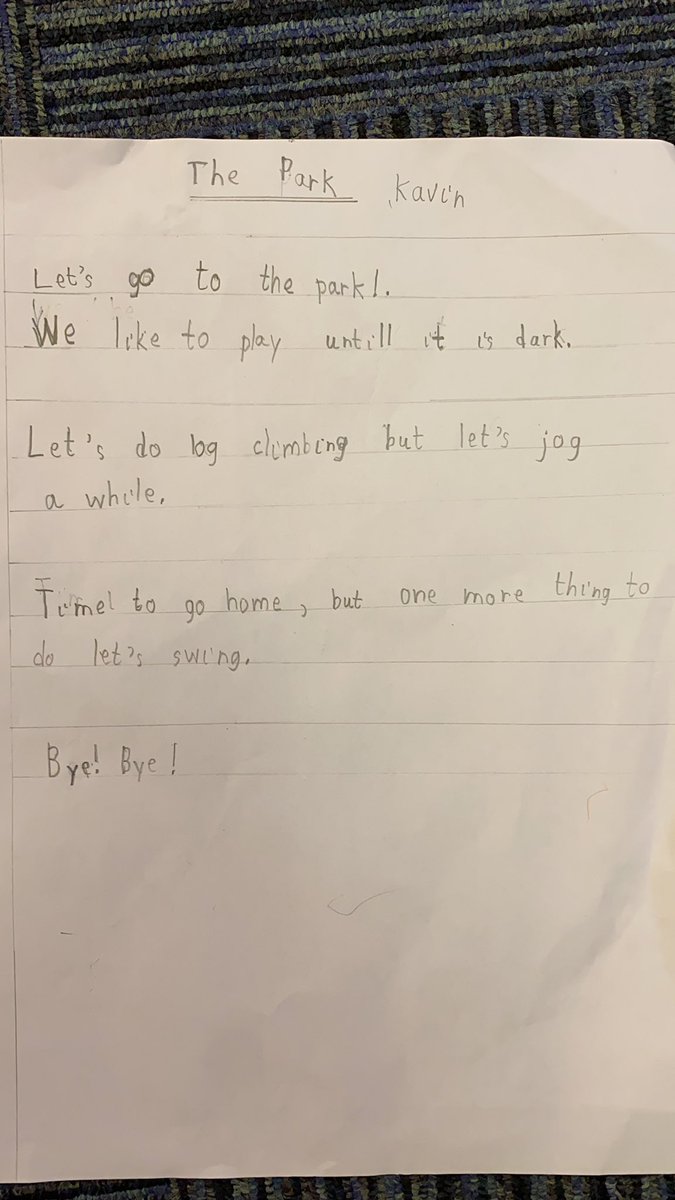 The Park Kavin
Let's go to the park!.
We like to play untill it is dark.
Let's do log climbing but let's jog
a while.
Time! to go home, but one more thing to
do let's swing.
Bye! Bye!